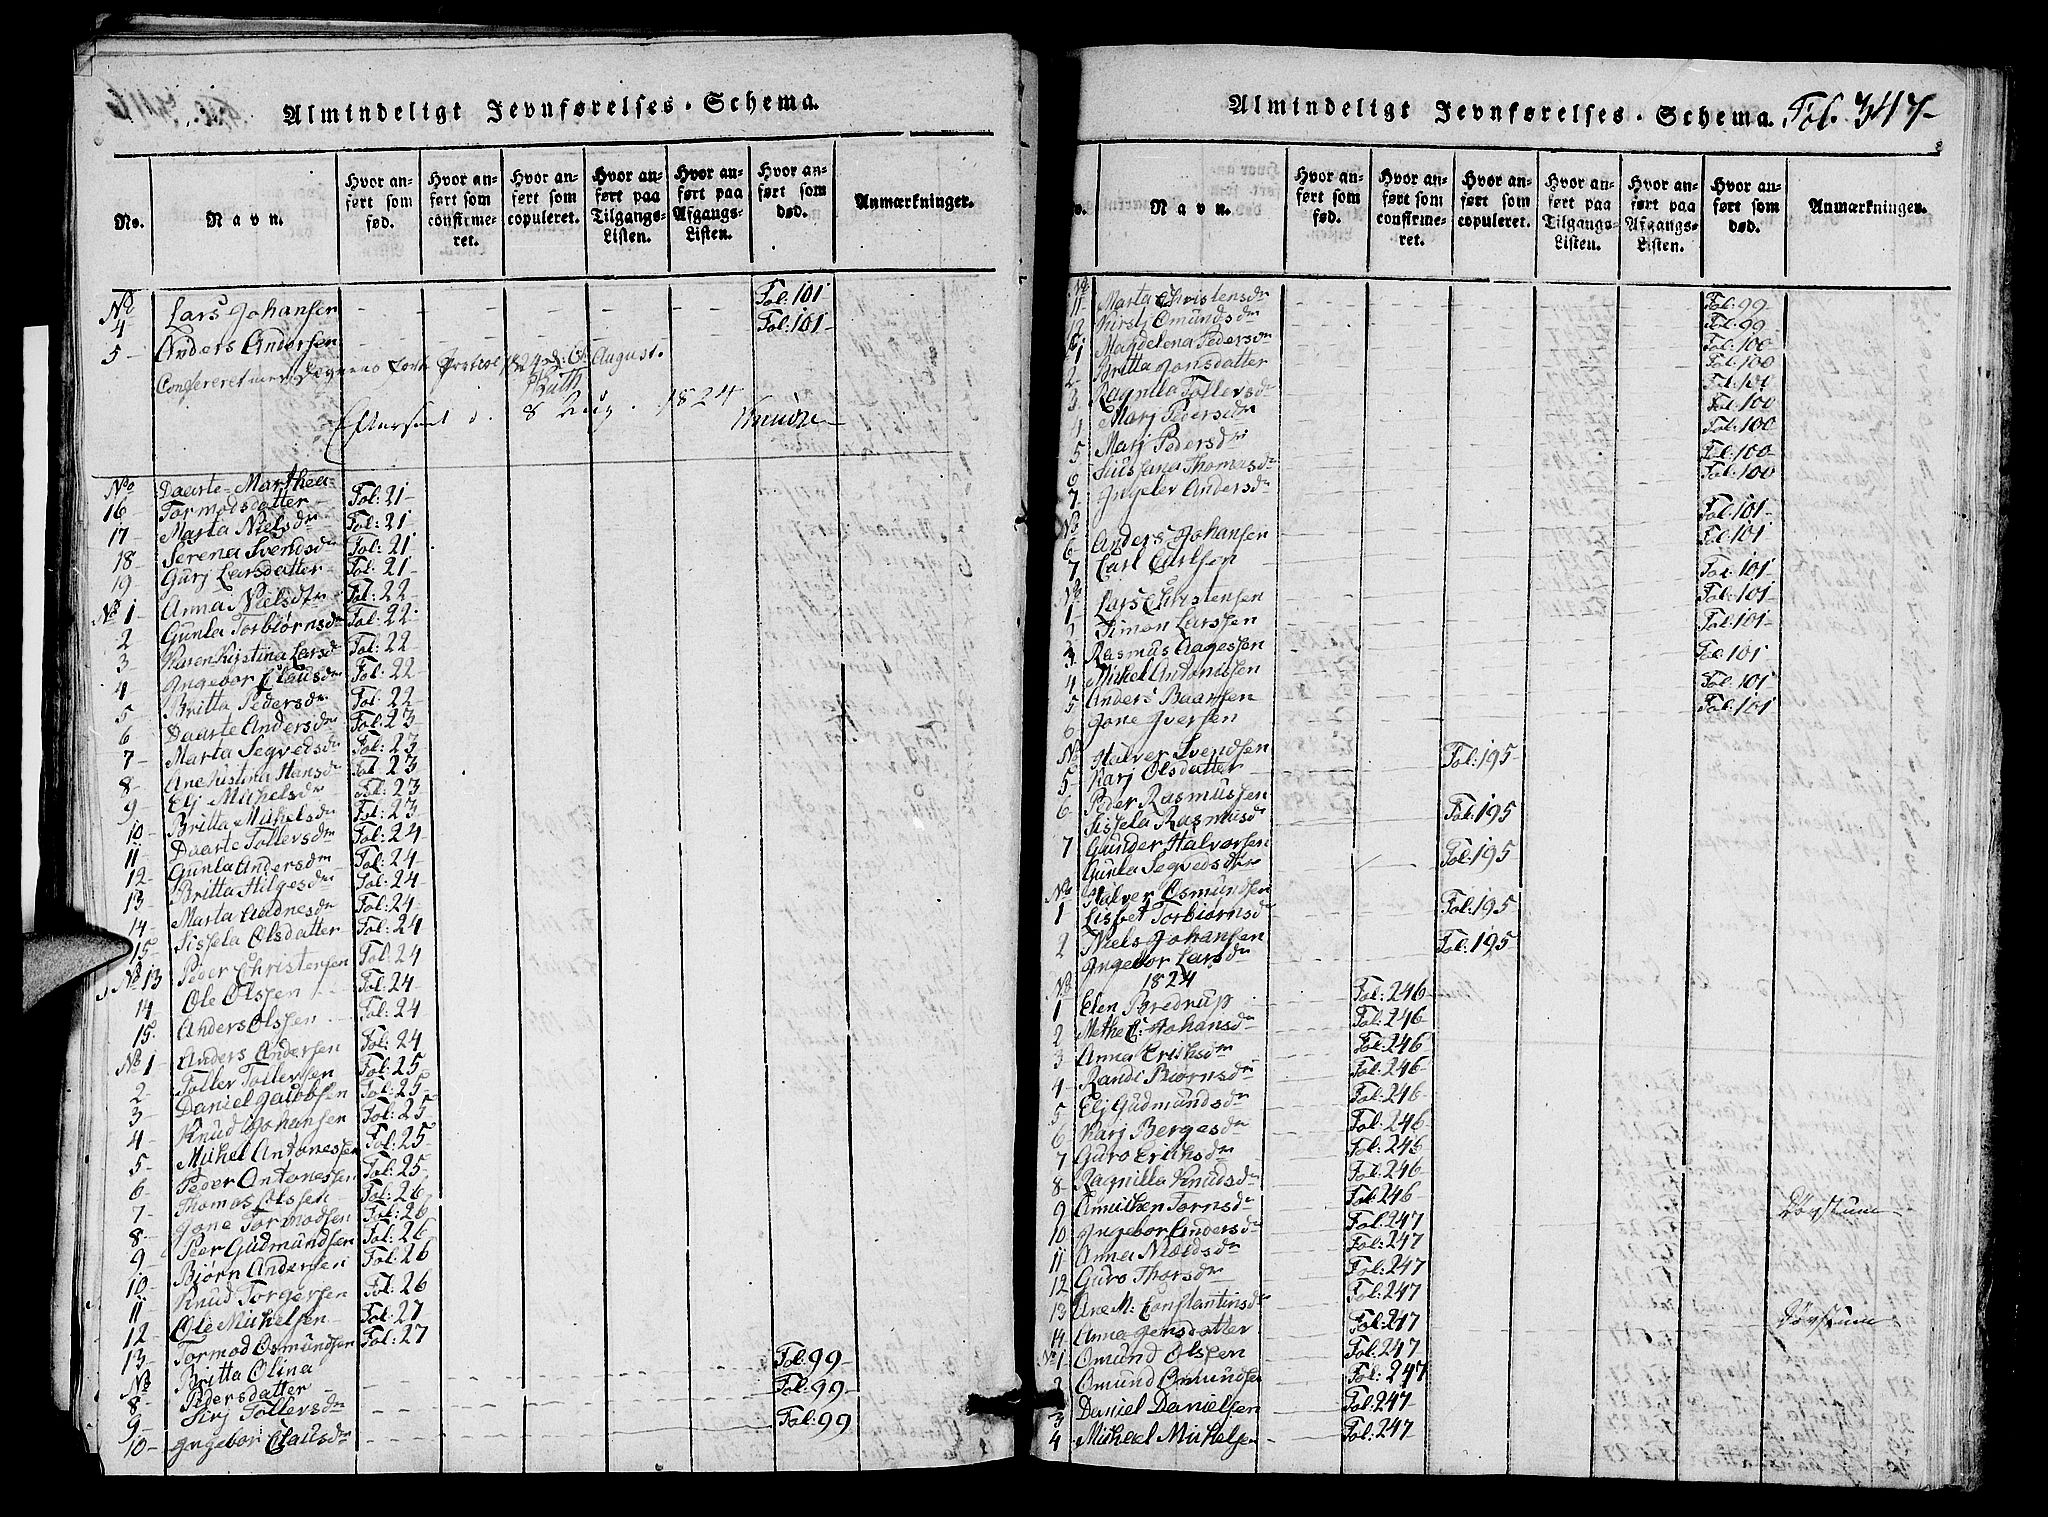 Almindeligt Jevnførelses-Schema.
No.
Navn.
Hvor anført som fød.
Hvor anført som confirmeret.
Hvor anført som copuleret.
Hvor anført paa Tilgangs-Listen.
Hvor anført paa Afgangs-Listen.
Hvor anført som død.
Anmærkninger.
No
4 Lars Johansen Fol: 101
5 Anders Andersen Fol: 101
Confereret med Degnens 1824 d: 6 August.
Efterseet d. 8 Aug. 1824
No Daarte Marthea
16 Tormodsdatter Fol: 21
17 Marta Nielsdr Fol: 21
18 Serena Svendsdr Fol: 21
19 Gurj Larsdatter Fol: 21
No 1 Anna Nielsdtr Fol: 22
2 Gunla Torbiørnsdr Fol: 22
3 Karen Kirstina Larsd Fol: 22
4 Ingebor Clausdr Fol: 22
5 Britta Pedersdr Fol: 22
6 Daarte Andersdr Fol: 23
7 Marta Segvedsdr Fol: 23
8 Ane Kistina Hansdr Fol 23
9 Elj Mickelsdr Fol: 23
10 Britta Mickelsdr Fol: 23
11 Daarte Tollevsdr Fol: 24
12 Gunla Andersdr Fol: 24
13 Britta Hilgesdr Fol: 24
14 Marta Audnesdr Fol: 24
15 Sissela Olsdatter Fol: 24
No 13 Peder Christensen Fol: 24
14 Ole Olsen Fol: 24
15 Anders Olssen Fol: 24
No 1 Anders Andersen Fol: 24
2 Toller Tollevsen Fol: 25
3 Daniel Jacobsen Fol: 25
4 Knud Johansen Fol: 25
5 Mickel Antonessen Fol: 25
6 Peder Antonessen Fol: 25
7 Thomas Olssen Fol: 26
8 Jone Tormodsen Fol: 26
9 Peer Gudmundsen Fol: 26
10 Bjørn Andersen Fol: 26
11 Knud Torgersen Fol: 26
12 Ole Mickelsen Fol: 27
13 Tormod Osmundsen Fol: 27
No Britta Olina
8 Pedersdatter Fol: 99
9 Sirj Tollevsdr Fol: 99
10 Ingebor Clausdr Fol: 99
Almindeligt Jevnførelses-Schema.
Fol. 347
Navn.
Hvor anført som fød.
Hvor anført som confirmeret.
Hvor anført som copuleret.
Hvor anført paa Tilgangs-Listen.
Hvor anført paa Afgangs-Listen.
Hvor anført som død.
Anmærkninger.
No
11 Marta Christensdr Fol: 99
12 Kirstj Omundsdr Fol: 99
Magdelena Pedersdr Fol: 100
1 Britta Jonsdatter Fol: 100
2 Ragnila Tollevsdr Fol: 101
3 Marj Pedersdr Fol: 100
4 Marj Pedersdr Fol: 100
5 Sussana Thomasdr Fol: 100
6 Ingelev Andersdr Fol: 100
7
No
6 Anders Johansen Fol: 101
7 Carl Carlsen Fol: 101
No
1 Lars Christensen Fol: 101
2 Simon Larssen Fol: 101
3 Rasmus Aagessen Fol: 101
4 Mickel Antonissen Fol: 101
5 Anders Baarsen Fol: 101
6 Jone Iversen Fol: 101
No Halver Svendsen
5 Karj Olsdatter Fol: 195
6 Peder Rasmussen
Sissela Rasmusdr Fol: 195
7 Gunder Halvorsen
Gunla Segvedsdtr Fol: 195
No Halver Osmundsen
1 Lisbet Torbiørnsdr Fol: 195
2 Niels Johansen
Ingebor Larsdr Fol: 195
No 1824
1 Elen Bredrup Fol: 246
2 Methe C: Johansdr Fol: 246
3 Anna Erichsdr Fol: 246
4 Randi Biørnsdr Fol: 246
5 Elj Gudmundsdr Fol: 246
6 Karj Bergesdr Fol: 246
7 Guro Erichsdr Fol: 246
8 Ragnilla Knudsdr Fol: 246
9 Tornsdr Fol: 246
10 Ingebor Andersdr Fol: 247
11 Anna Nieldsdr Fol: 247
12 Guro Thorsdr Fol: 247
13 Ane M: Constantinsdr Fol: 247
14 Anna Jensdatter Fol: 247
No 1 Omund Olssen Fol: 247
2 Omund Omundsen Fol: 247
3 Daniel Danielsen Fol: 247
4 Mickael Mickelsen Fol: 247